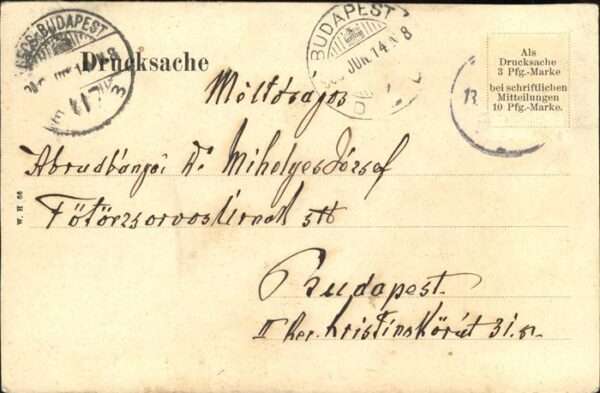 BUDAPEST
BUDAPEST
JUN. 14
8
Drucksache
Als
Drucksache
3 Pfg.-Marke
bei schriftlichen
Mitteilungen
10 Pfg.-Marke.
Méltóságos
Abrudbányai Dr. Mihelyes József
Főtörzsorvos úrnak stb
Budapest.
II Ker. Kristinakörút 31. sz.
W. H 66